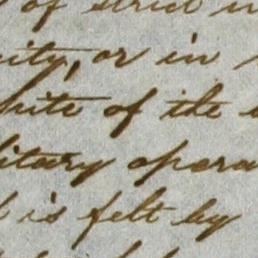 of strict
ity, or in
spite of the
litary opera
is felt by